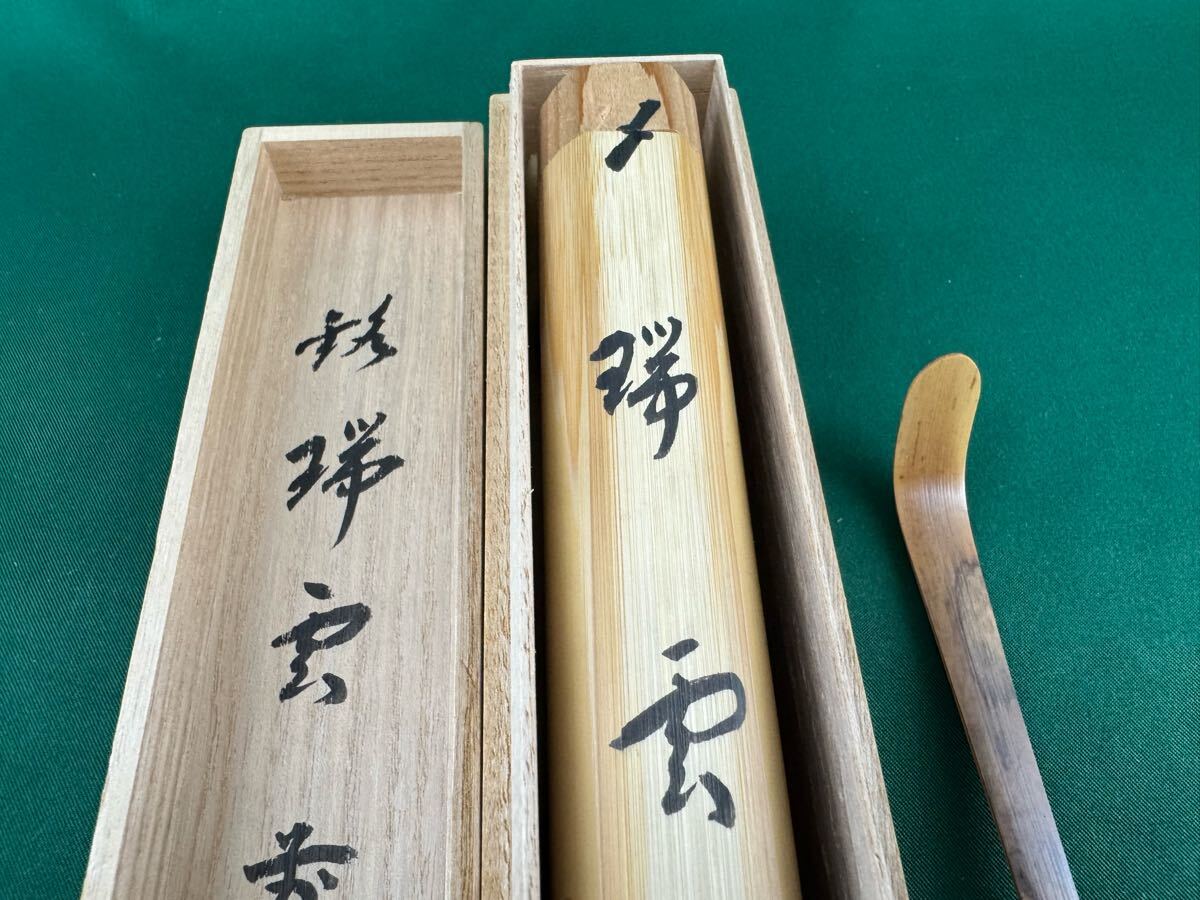 瑞雲
銘瑞雲